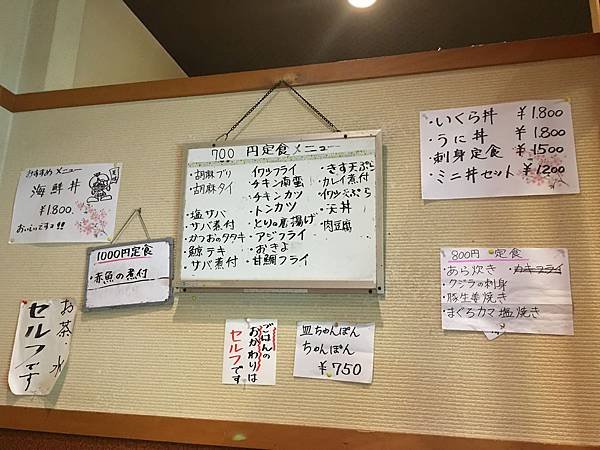 おすすめ メニュー
海鮮丼
¥1.800.
おいしいですヨ!!
1000円定食
・赤魚の煮付
お茶・水
セルフです
700 円定食メニュー
・胡麻ブリ
・胡麻タイ
・塩サバ
・サバ煮付
・かつおのタタキ
・鯨テキ
・サバ煮付
・イワシフライ
・チキン南蛮
・チキンカツ
・トンカツ
・とりの唐揚げ
・アジフライ
・おきよ
・甘鯛フライ
・きす天ぷら
・カレイ煮付
・イワシ天ぷら
・天丼
・肉豆腐
ごはんの
おかわりは
セルフです
皿ちゃんぽん
ちゃんぽん
¥750
・いくら丼 ¥1.800
・うに丼 ¥1.800
・刺身定食 ¥1500
・ミニ丼セット ¥1200
800円 定食
・あら炊き ・カキフライ
・クジラの刺身
・豚生姜焼き
・まぐろカマ塩焼き